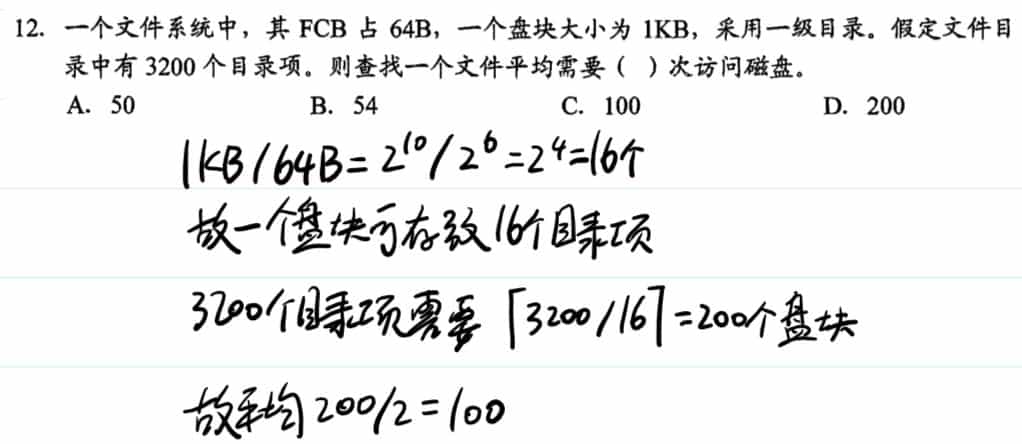 12. 一个文件系统中，其 FCB 占 64B，一个盘块大小为 1KB，采用一级目录。假定文件目
录中有 3200 个目录项。则查找一个文件平均需要（ ）次访问磁盘。
A. 50 B. 54 C. 100 D. 200
1KB/64B=2^10/2^6=2^4=16个
故一个盘块可存放16个目录项
3200个目录项需要⌈3200/16⌉=200个盘块
故平均200/2=100